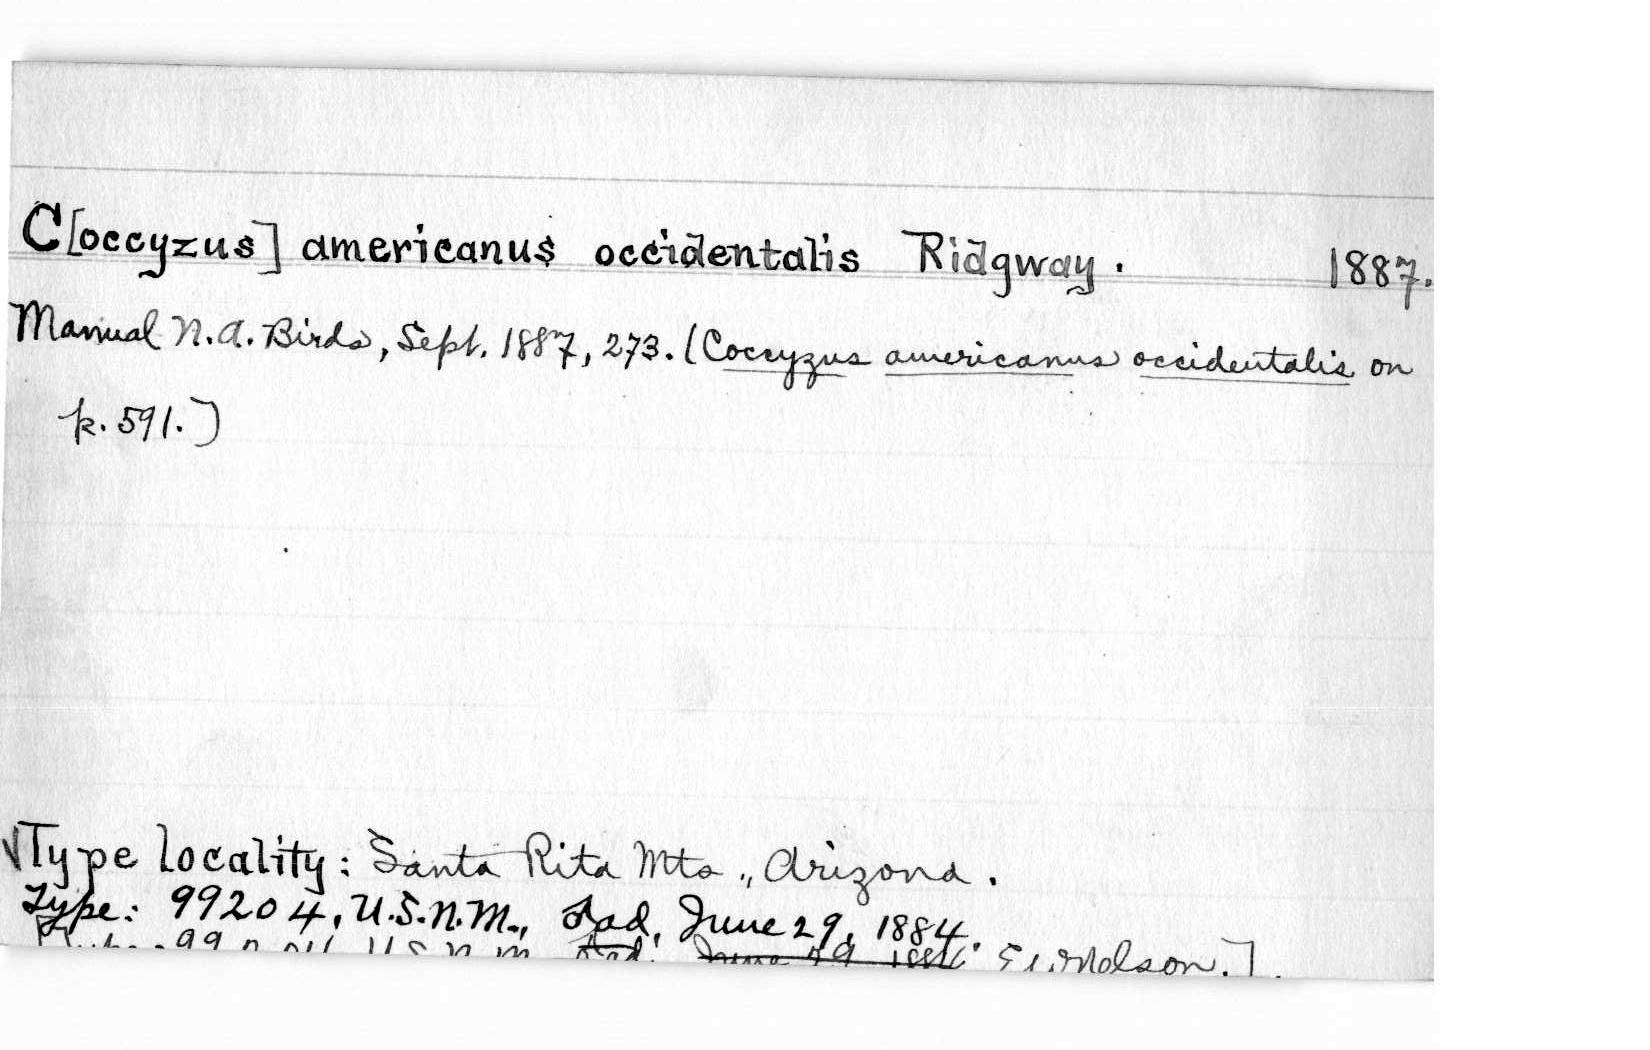 C[occyzus] americanus occidentalis Ridgway. 1887.
Manual N.A. Birds, Sept. 1887, 273. (Coccyzus americanus occidentalis on
p. 591.)
√Type locality: Santa Rita Mts., Arizona.
Type: 99204, U.S.N.M., ♂ad, June 29, 1884.
[Type: 99204 U.S.N.M. ♂ad. June 29 1884 E.W. Nelson.].